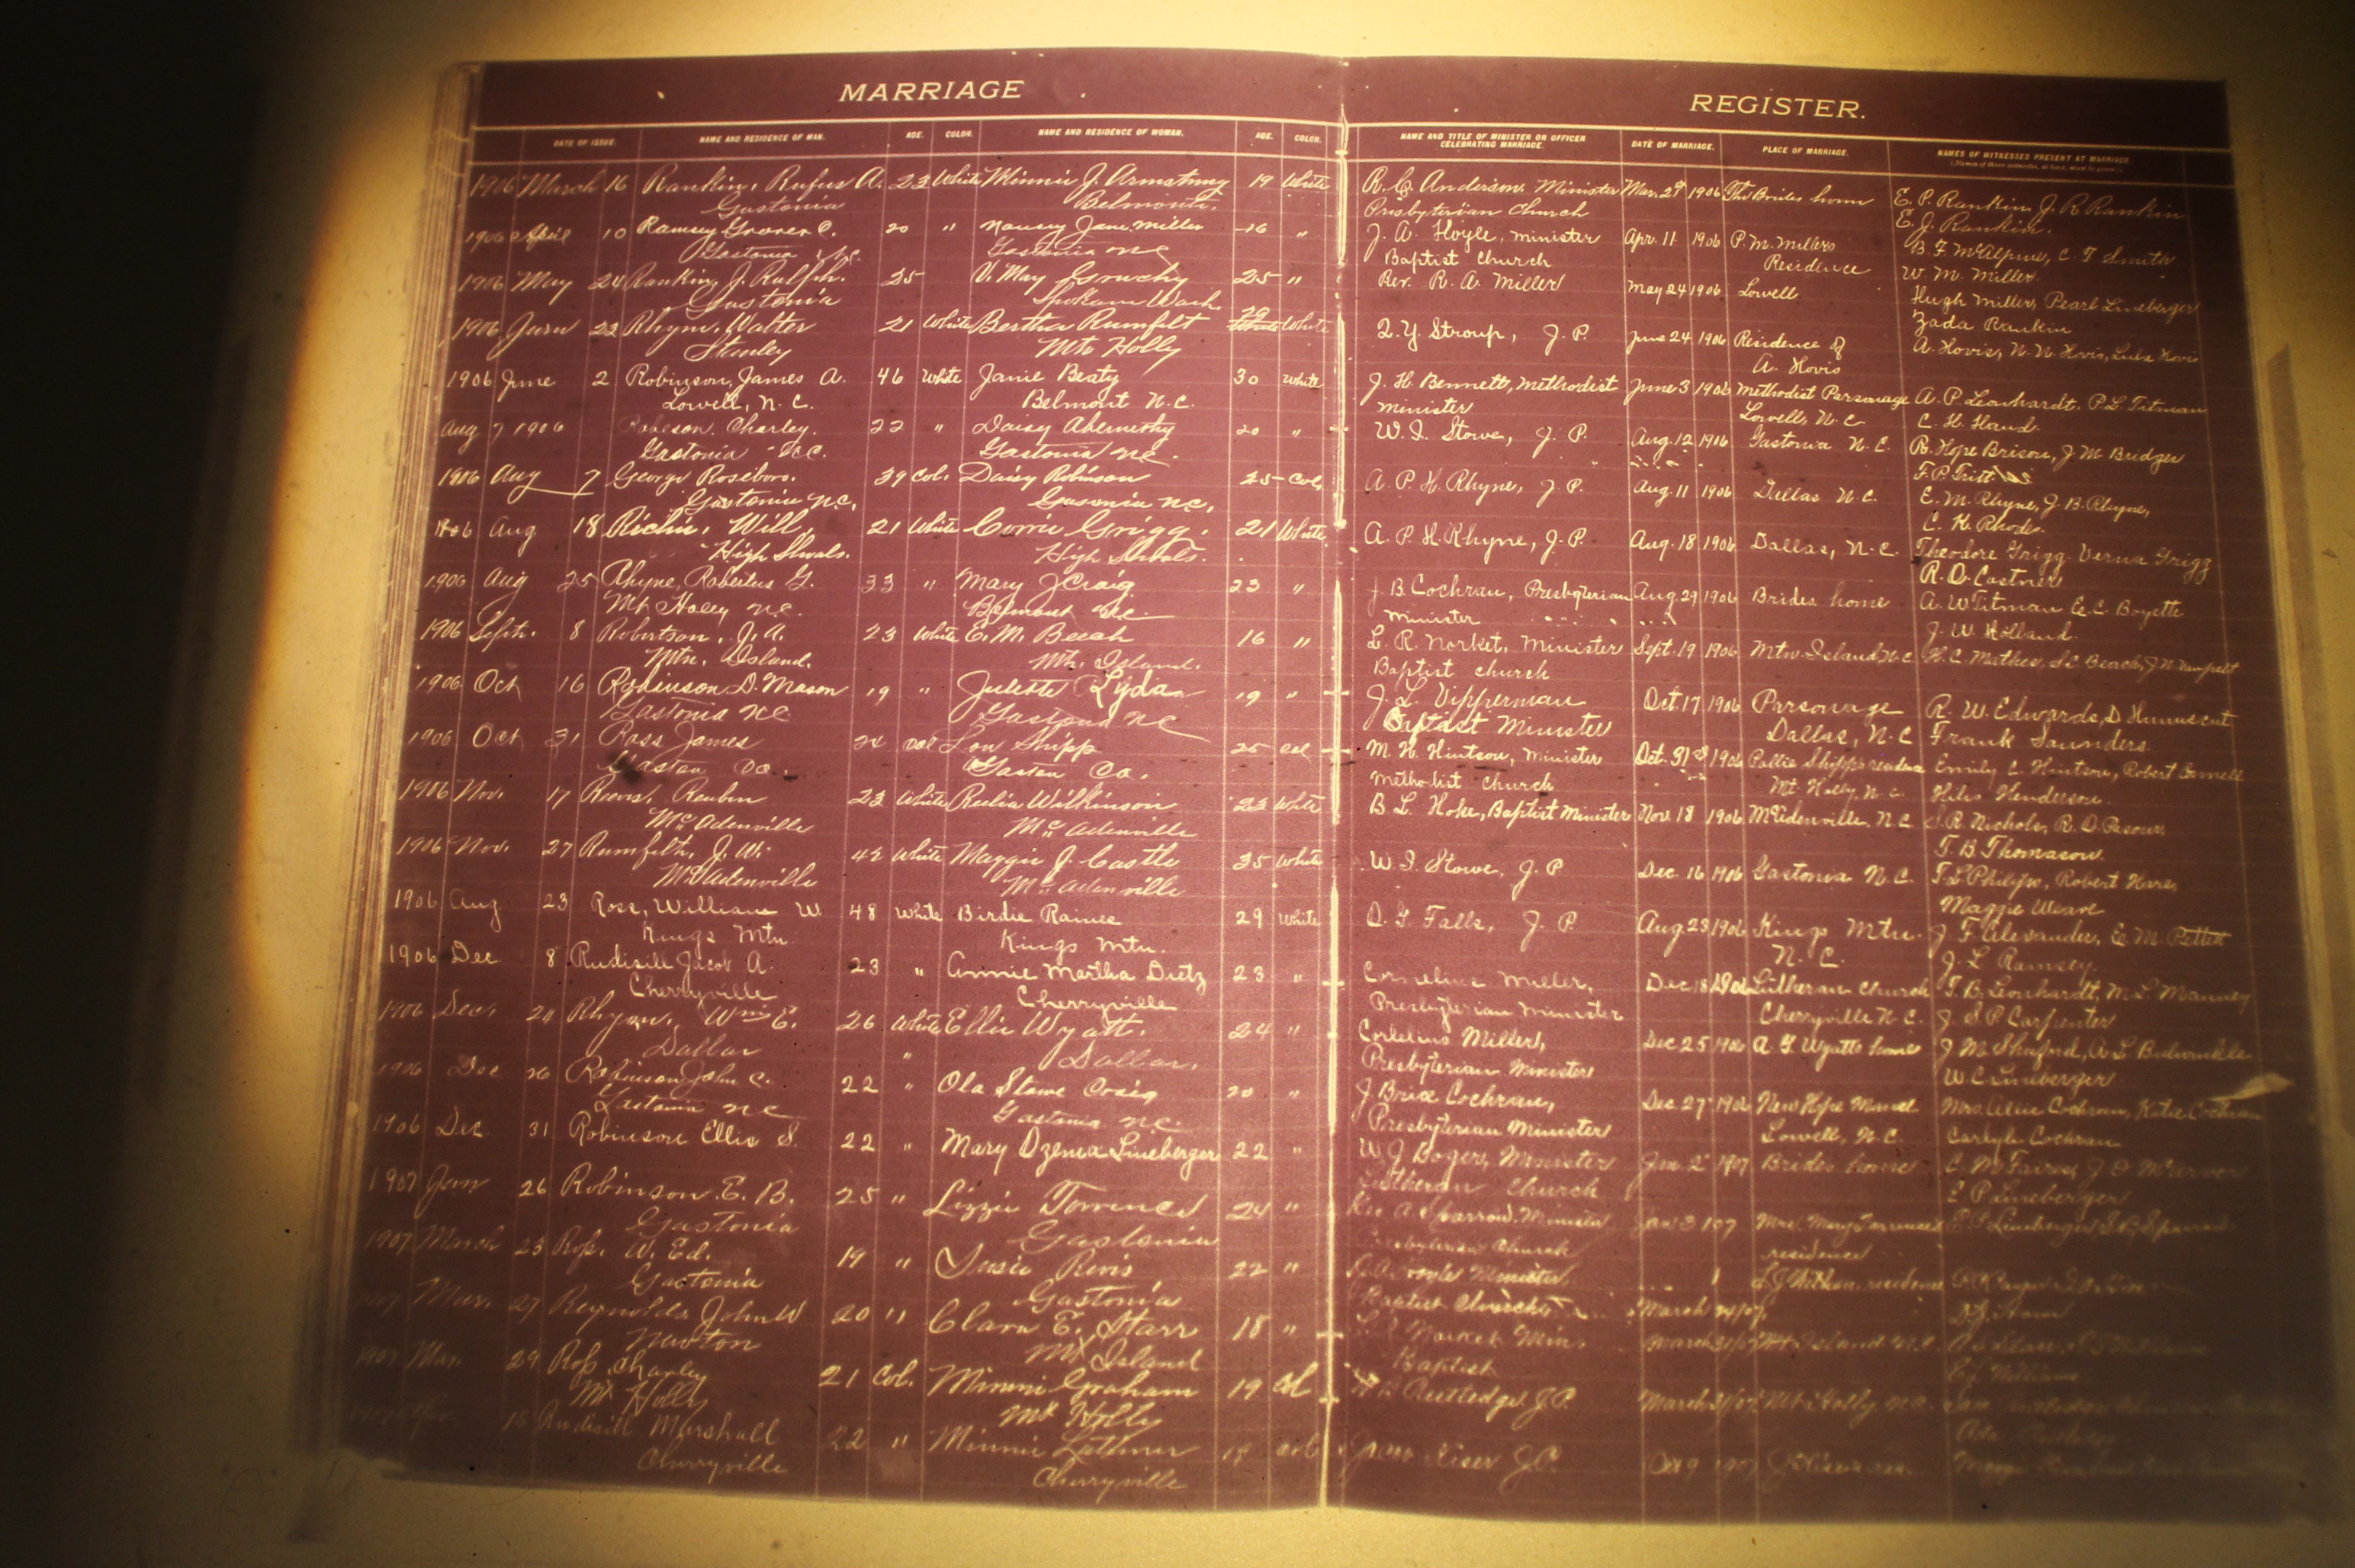 MARRIAGE REGISTER.
DATE OF ISSUE. NAME AND RESIDENCE OF MAN. AGE. COLOR. NAME AND RESIDENCE OF WOMAN. AGE. COLOR. NAME AND TITLE OF MINISTER OR OFFICER CELEBRATING MARRIAGE. DATE OF MARRIAGE. PLACE OF MARRIAGE. NAMES OF WITNESSES PRESENT AT MARRIAGE.
1906 March 16 Rankin, Rufus A. 23 White Minnie J. Armstrong 19 White R. C. Anderson, Minister Mar. 29 1906 The Brides home E. P. Rankin, J. R. Rankin
Gastonia Belmont. Presbyterian Church E. J. Rankin.
1906 April 10 Ramsey Grover C. 20 " Nancy Jane Miller 16 " J. A. Hoyle, Minister Apr. 11 1906 P. M. Millers B. F. McAlpine, C. T. Smith
Gastonia N.C. Gastonia N C Baptist Church Residence W. M. Miller
1906 May 24 Rankin, J. Ralph. 25 V. May 25 " Rev. R. A. Miller May 24 1906 Lowell Hugh Miller, Pearl Lineberger
Gastonia Spokane Wash. Zada Rankin
1906 June 22 Rhyne, Walter 21 White Bertha Rumfelt 29 White Q. Y. Stroup, J. P. June 24 1906 Residence of A. Hovis, N. N. Hovis, Lula Hovis
Stanley Mt. Holly A. Hovis
1906 June 2 Robinson, James A. 46 White Janie Beaty 30 White J. H. Bennett, Methodist June 3 1906 Methodist Parsonage A. P. Leonhardt. P. L. Titman
Lowell, N. C. Belmont N. C. Minister Lowell, N. C. C. H. Hand.
Aug 7 1906 Robeson. Charley. 22 " Daisy Abernethy 20 " W. I. Stowe, J. P. Aug. 12 1906 Gastonia N. C. R. Hope Brison, J. M. Bridges
Gastonia N.C. Gastonia N.C. F. P. Tritt
1906 Aug 7 George Roseboro. 39 Col. Daisy Robinson 25 Col. A. P. H. Rhyne, J. P. Aug. 11 1906 Dallas N. C. E. M. Rhyne, J. B. Rhyne,
Gastonia N.C. Gasonia N.C. C. H. Rhodes.
1906 Aug 18 Richie, Will, 21 White Corrie Grigg, 21 White A. P. H. Rhyne, J. P. Aug. 18 1906 Dallas, N. C. Theodore Grigg. Verna Grigg
High Shoals. High Shoals. R. D. Castner
1906 Aug 25 Rhyne, Robertus G. 33 " Mary J Craig 23 " J B Cochran, Presbyterian Aug. 29 1906 Brides home A. W. Titman E. C. Boyette
Mt. Holly N.C. Belmont N.C. Minister J. W. Holland.
1906 Sept. 8 Robertson, J. A. 23 White E. M. Beach 16 " L. R. Norket, Minister Sept. 19 1906 Mtn. Island, N.C.
Mtn. Island. Mtn. Island. Baptist Church
1906 Oct 16 Robinson D. Mason 19 " Juliette Lyda 19 " J. L. Vipperman Oct. 17 1906 Parsonage R. W. Edwards, D. Hunnicut
Gastonia N C Gastonia N C Baptist Minister Dallas, N. C Frank Saunders.
1906 Oct 31 Ross James 24 Col Lou Shipp 25 Col M. H. Hintson, Minister Oct. 31 1906 Pallie Shipp's residence Emily C. Hintson, Robert
Gaston Co. Gaston Co. Methodist Church Mt. Holly, N. C. Henderson.
1906 Nov. 17 Revis, Reuben 23 White Rulia Wilkinson 23 White B L. Hoke, Baptist Minister Nov. 18 1906 McAdenville, N. C S. R. Nichols, R. O. Pasour,
McAdenville McAdenville T. B. Thomason.
1906 Nov. 27 Rumfelt, J. W. 42 White Maggie J. Castle 35 White W. I. Stowe, J. P Dec. 16 1906 Gastonia N. C. T. L. Philips, Robert Hare,
McAdenville McAdenville Maggie Weare
1906 Aug 23 Ross, William W. 48 White Birdie Raines 29 White O. G. Falls, J. P. Aug. 23 1906 Kings Mtn. J. F. Alexander, E. M. Pettitt
Kings Mtn. Kings Mtn. N. C. J. L. Ramsey.
1906 Dec 8 Rudisill Jacob A. 23 " Annie Martha Dietz 23 " Cornelius Miller, Dec. 18 1906 Lutheran Church T. B. Leonhardt, M. L. Mauney
Cherryville Cherryville Presbyterian Minister Cherryville N. C. J. S. P. Carpenter
1906 Dec. 24 Rhyne, Wm E. 26 White Ellie Wyatt. 24 " Cornelius Miller, Dec 25 1906 A. G. Wyatts home J. M. Shuford, A. L. Bulwinkle
Dallas Dallas. Presbyterian Minister W. C. Lineberger
1906 Dec 26 Robinson John C. 22 " Ola Stowe Craig 20 " J Brice Cochran, Dec 27 1906 New Hope Manse Mrs. Allie Cochran, Katie Cochran
Gastonia N C Gastonia N.C. Presbyterian Minister Lowell, N. C. Carlyle Cochran
1906 Dec. 31 Robinson Ellis S. 22 " Mary Ozema Lineberger 22 " W J Boger, Minister Jan 2 1907 Brides home
Lutheran Church E P Lineberger
1907 Jan 26 Robinson. E. B. 25 " Lizzie Torrence 24 " Geo A Sparrow, Minister Mrs. Mary Torrences
Gastonia Gastonia Presbyterian Church residence
1907 March 23 Ross. W. Ed. 19 " Susie Revis 22 " Minister residence
Gastonia Gastonia Baptist Church March
1907 Mar. 27 Reynolds, John W 20 " Clara E. Starr 18 " Norket Min. March 31/07 Mt Island N.C.
Newton Mt Island Baptist Williams
1907 Mar. 29 Ross, Charley 21 Col. Minni Graham 19 Col Rutledge J.P. March 31/07 Mt Holly N.C.
Mt Holly Mt Holly
18 Rudisill Marshall 22 " Minnie 18 Col Kiser J.P. 1907
Cherryville Cherryville